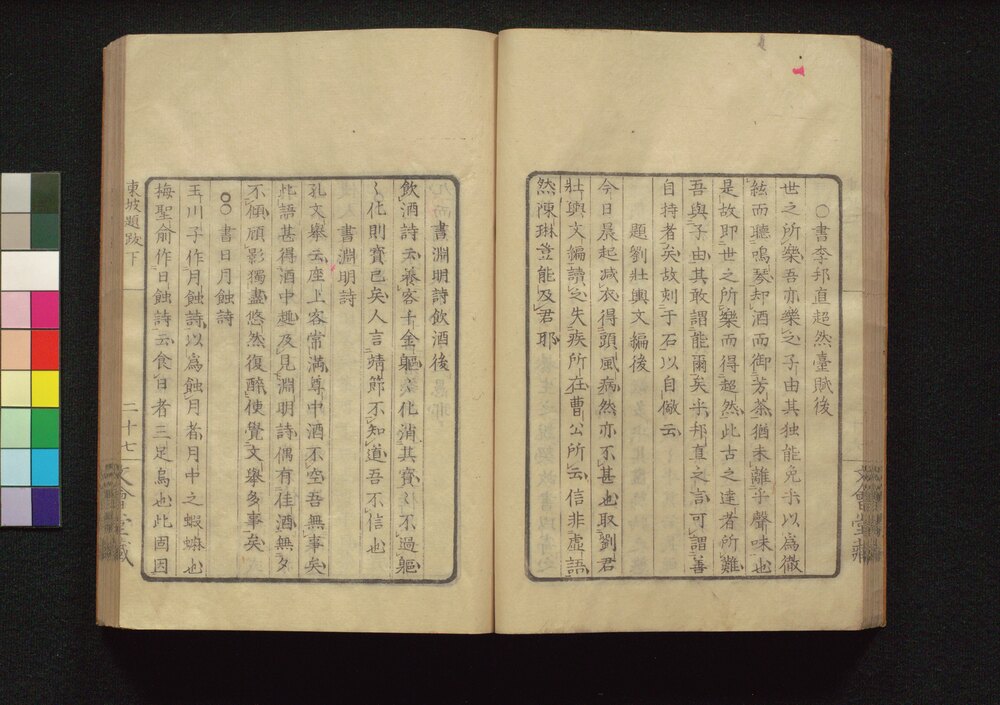 ○書李邦直超然臺賦後
世之所樂吾亦樂之子由其独能免乎以為徹
絃而聽鳴琴却酒而御芳茶猶未離乎聲味也
是故即世之所樂而得超然此古之達者所難
吾與子由其敢謂能爾矣乎邦直之言可謂善
自持者矣故刻于石以自儆云
題劉壯輿文編後
今日晨起减衣得頭風病然亦不甚也取劉君
壯輿文編讀之失疾所在曹公所云信非虛語
然陳琳豈能及君耶
書淵明詩飲酒後
飲酒詩云養客千金軀〻化消其寶〻不過軀
〻化則寶已矣人言靖節不知道吾不信也
書淵明詩
孔文舉云座上客常滿尊中酒不空吾無事矣
此語甚得酒中趣及見淵明詩偶有佳酒無夕
不傾顧影獨盡悠然復醉便覺文舉多事矣
○○書日月蝕詩
玉川子作月蝕詩以為蝕月者月中之蝦蟆也
梅聖俞作日蝕詩云食日者三足烏也此固因
東坡題跋下
二十七